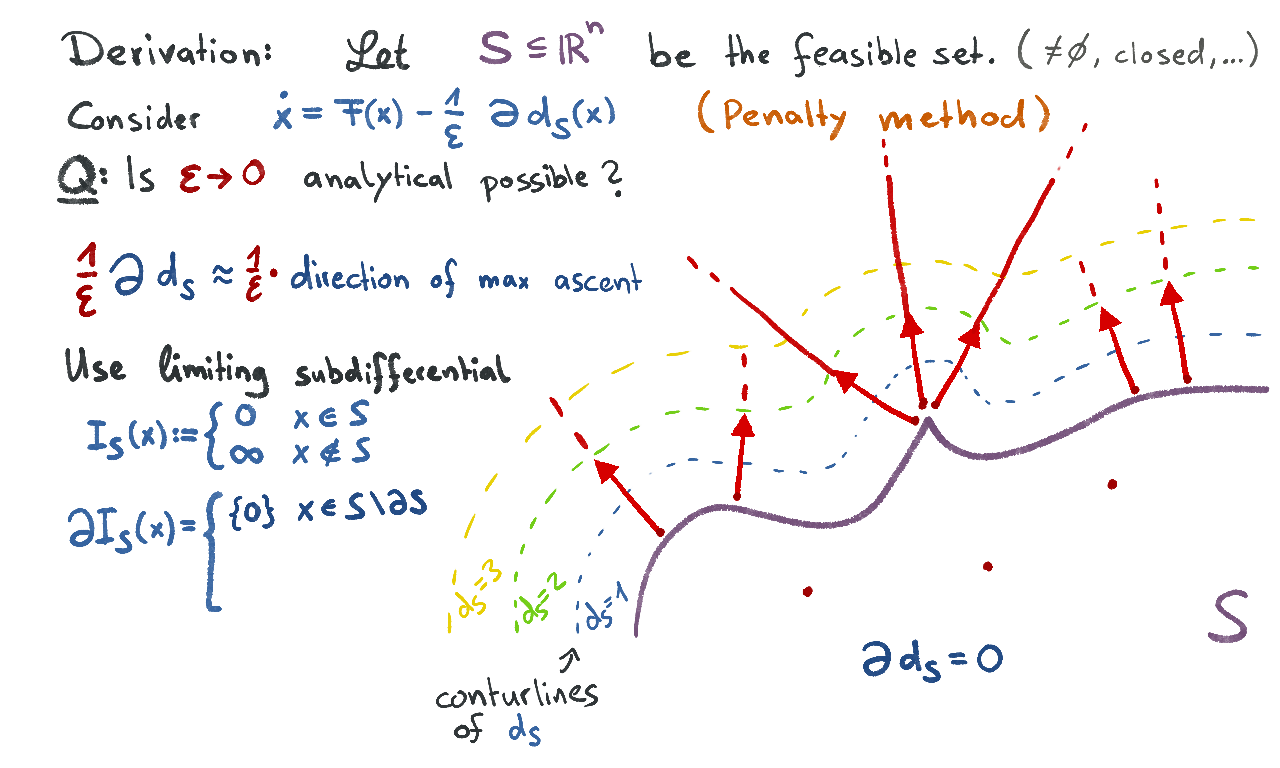 Derivation: Let S ⊆ ℝⁿ be the feasible set. (≠∅, closed,...)
Consider ẋ = F(x) - 1/ε ∂ d_S(x) (Penalty method)
Q: Is ε→0 analytical possible?
1/ε ∂ d_S ≈ 1/ε · direction of max ascent
Use limiting subdifferential
I_S(x):= { 0 x ∈ S
∞ x ∉ S
∂I_S(x)= { {0} x ∈ S\∂S
d_S=3
d_S=2
d_S=1
S
∂ d_S = 0
conturlines
of d_S